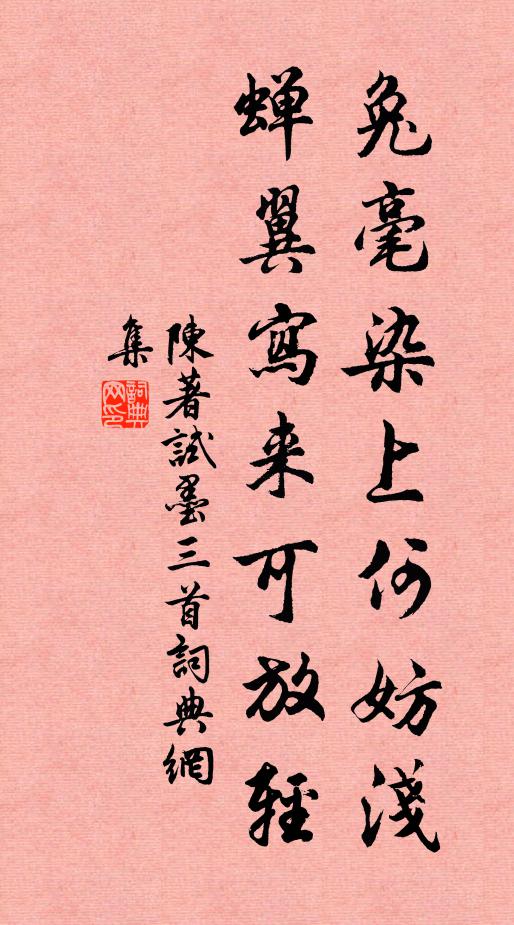 兔毫染上何妨淺
蝉翼寫来可放輕
陳著試墨三首詞典網
集
詞典
网印